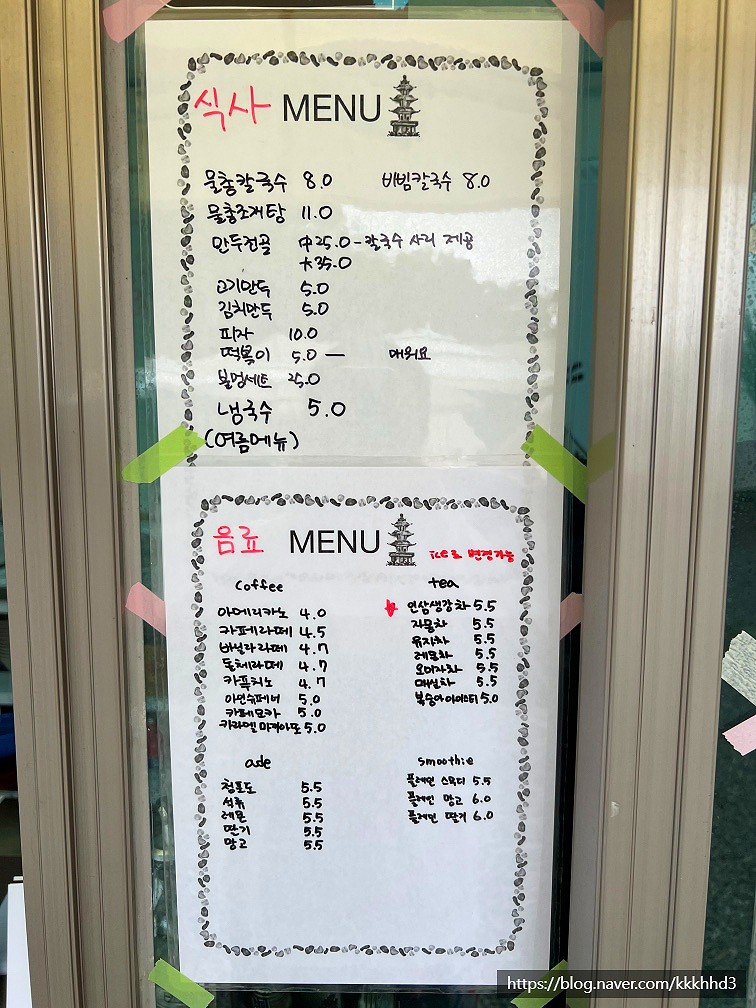 식사 MENU
물총칼국수 8.0 비빔칼국수 8.0
물총조개탕 11.0
만두전골 中25.0-칼국수 사리 제공
大35.0
고기만두 5.0
김치만두 5.0
피자 10.0
떡볶이 5.0 — 매워요
불멍세트 25.0
냉국수 5.0
(여름메뉴)
음료 MENU
ice로 변경가능
Coffee
아메리카노 4.0
카페라떼 4.5
바닐라라떼 4.7
돌체라떼 4.7
카푸치노 4.7
아인슈페너 5.0
카페모카 5.0
카라멜 마끼아또 5.0
tea
인삼생강차 5.5
자몽차 5.5
유자차 5.5
레몬차 5.5
오미자차 5.5
매실차 5.5
복숭아아이스티 5.0
ade
청포도 5.5
석류 5.5
레몬 5.5
딴기 5.5
망고 5.5
smoothie
플레인 스무디 5.5
플레인 망고 6.0
플레인 딸기 6.0
https://blog.naver.com/kkkhhd3